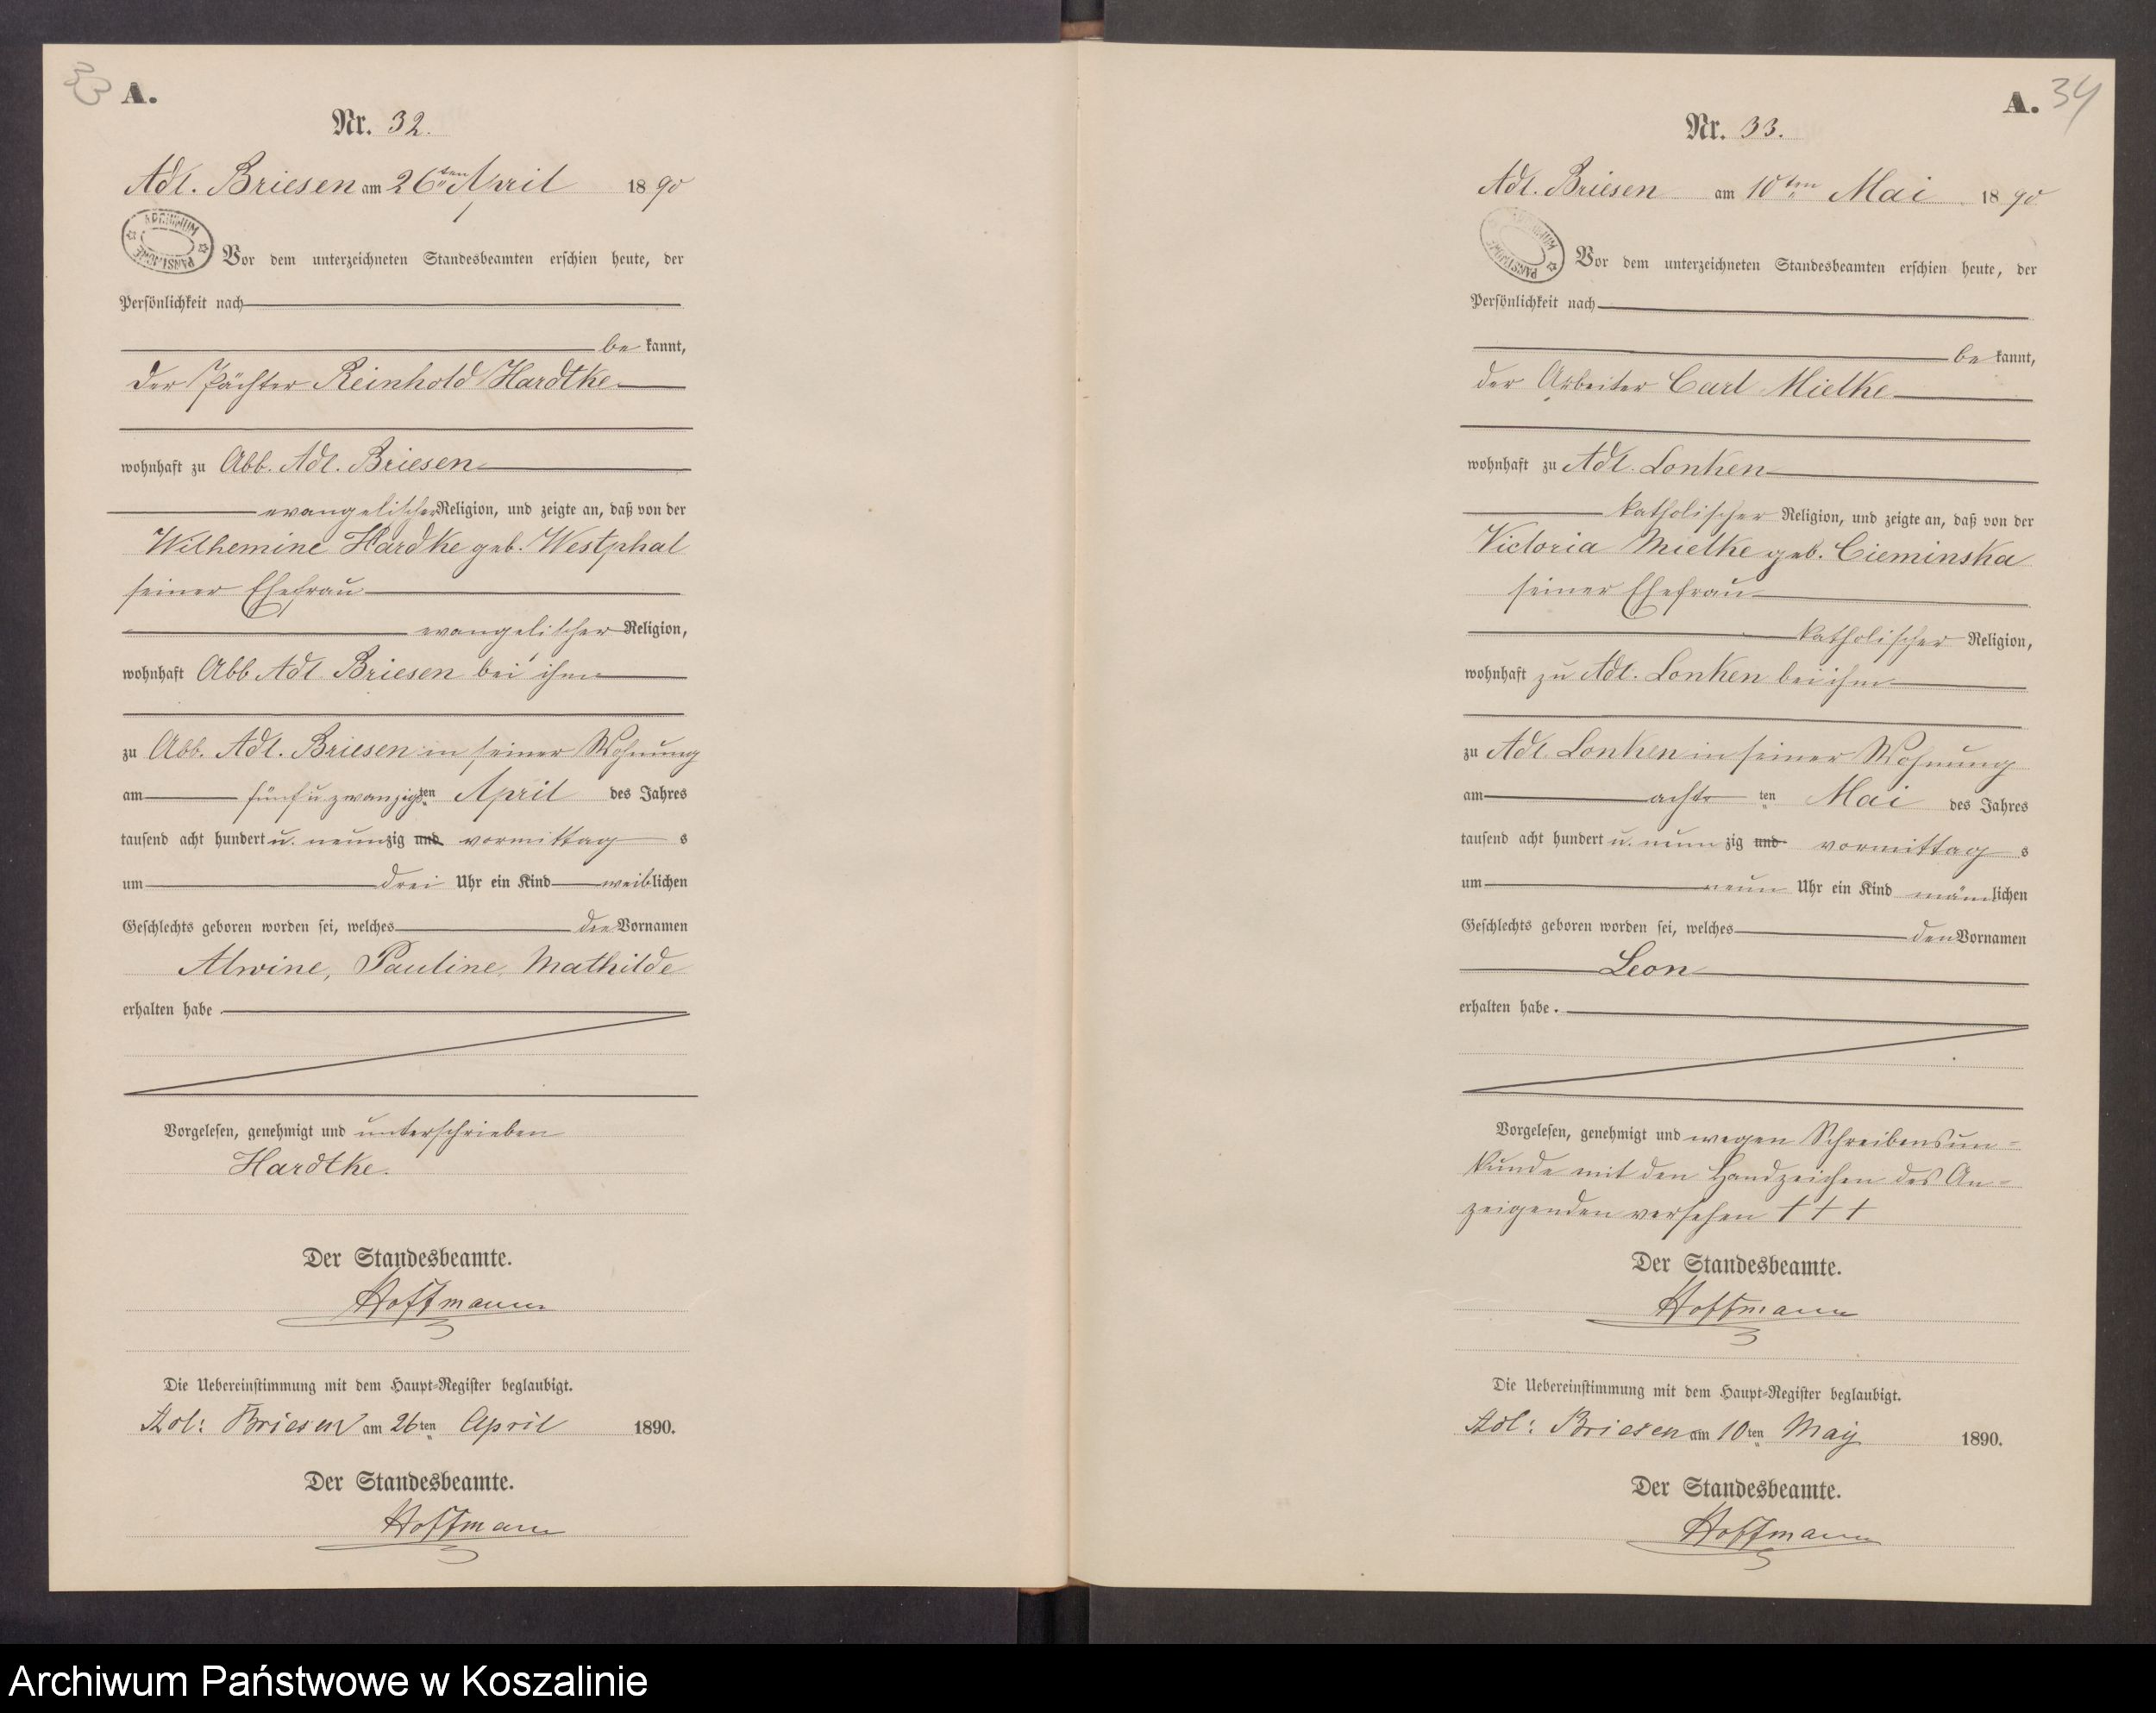 33
A.
Nr. 32.
Adl. Briesen am 26ten April 1890
ARCHIWUM PAŃSTWOWE
Vor dem unterzeichneten Standesbeamten erschien heute, der
Persönlichkeit nach
be kannt,
der Pächter Reinhold Hardtke
wohnhaft zu Abb. Adl. Briesen
evangelischer Religion, und zeigte an, daß von der
Wilhemine Hardke geb. Westphal
seiner Ehefrau
evangelischer Religion,
wohnhaft Abb Adl. Briesen bei ihm
zu Abb. Adl. Briesen in seiner Wohnung
am fünf u zwanzigsten April des Jahres
tausend acht hundert u. neunzig und vormittag s
um drei Uhr ein Kind weiblichen
Geschlechts geboren worden sei, welches die Vornamen
Alwine, Pauline, Mathilde
erhalten habe
Vorgelesen, genehmigt und unterschrieben
Hardtke.
Der Standesbeamte.
Hoffmann
Die Uebereinstimmung mit dem Haupt-Register beglaubigt.
Adl: Briesen am 26ten April 1890.
Der Standesbeamte.
Hoffmann
A. 34
Nr. 33.
Adl. Briesen am 10ten Mai 1890
ARCHIWUM PAŃSTWOWE
Vor dem unterzeichneten Standesbeamten erschien heute, der
Persönlichkeit nach
be kannt,
der Arbeiter Carl Mielke
wohnhaft zu Adl. Lonken
katholischer Religion, und zeigte an, daß von der
Victoria Mielke geb. Cieminska
seiner Ehefrau
katholischer Religion,
wohnhaft zu Adl. Lonken bei ihm
zu Adl. Lonken in seiner Wohnung
am achten Mai des Jahres
tausend acht hundert u. neunzig und vormittag s
um neun Uhr ein Kind männlichen
Geschlechts geboren worden sei, welches den Vornamen
Leon
erhalten habe.
Vorgelesen, genehmigt und wegen Schreibensun=
kunde mit den Handzeichen des An=
zeigenden versehen + + +
Der Standesbeamte.
Hoffmann
Die Uebereinstimmung mit dem Haupt-Register beglaubigt.
Adl: Briesen am 10ten May 1890.
Der Standesbeamte.
Hoffmann
Archiwum Państwowe w Koszalinie